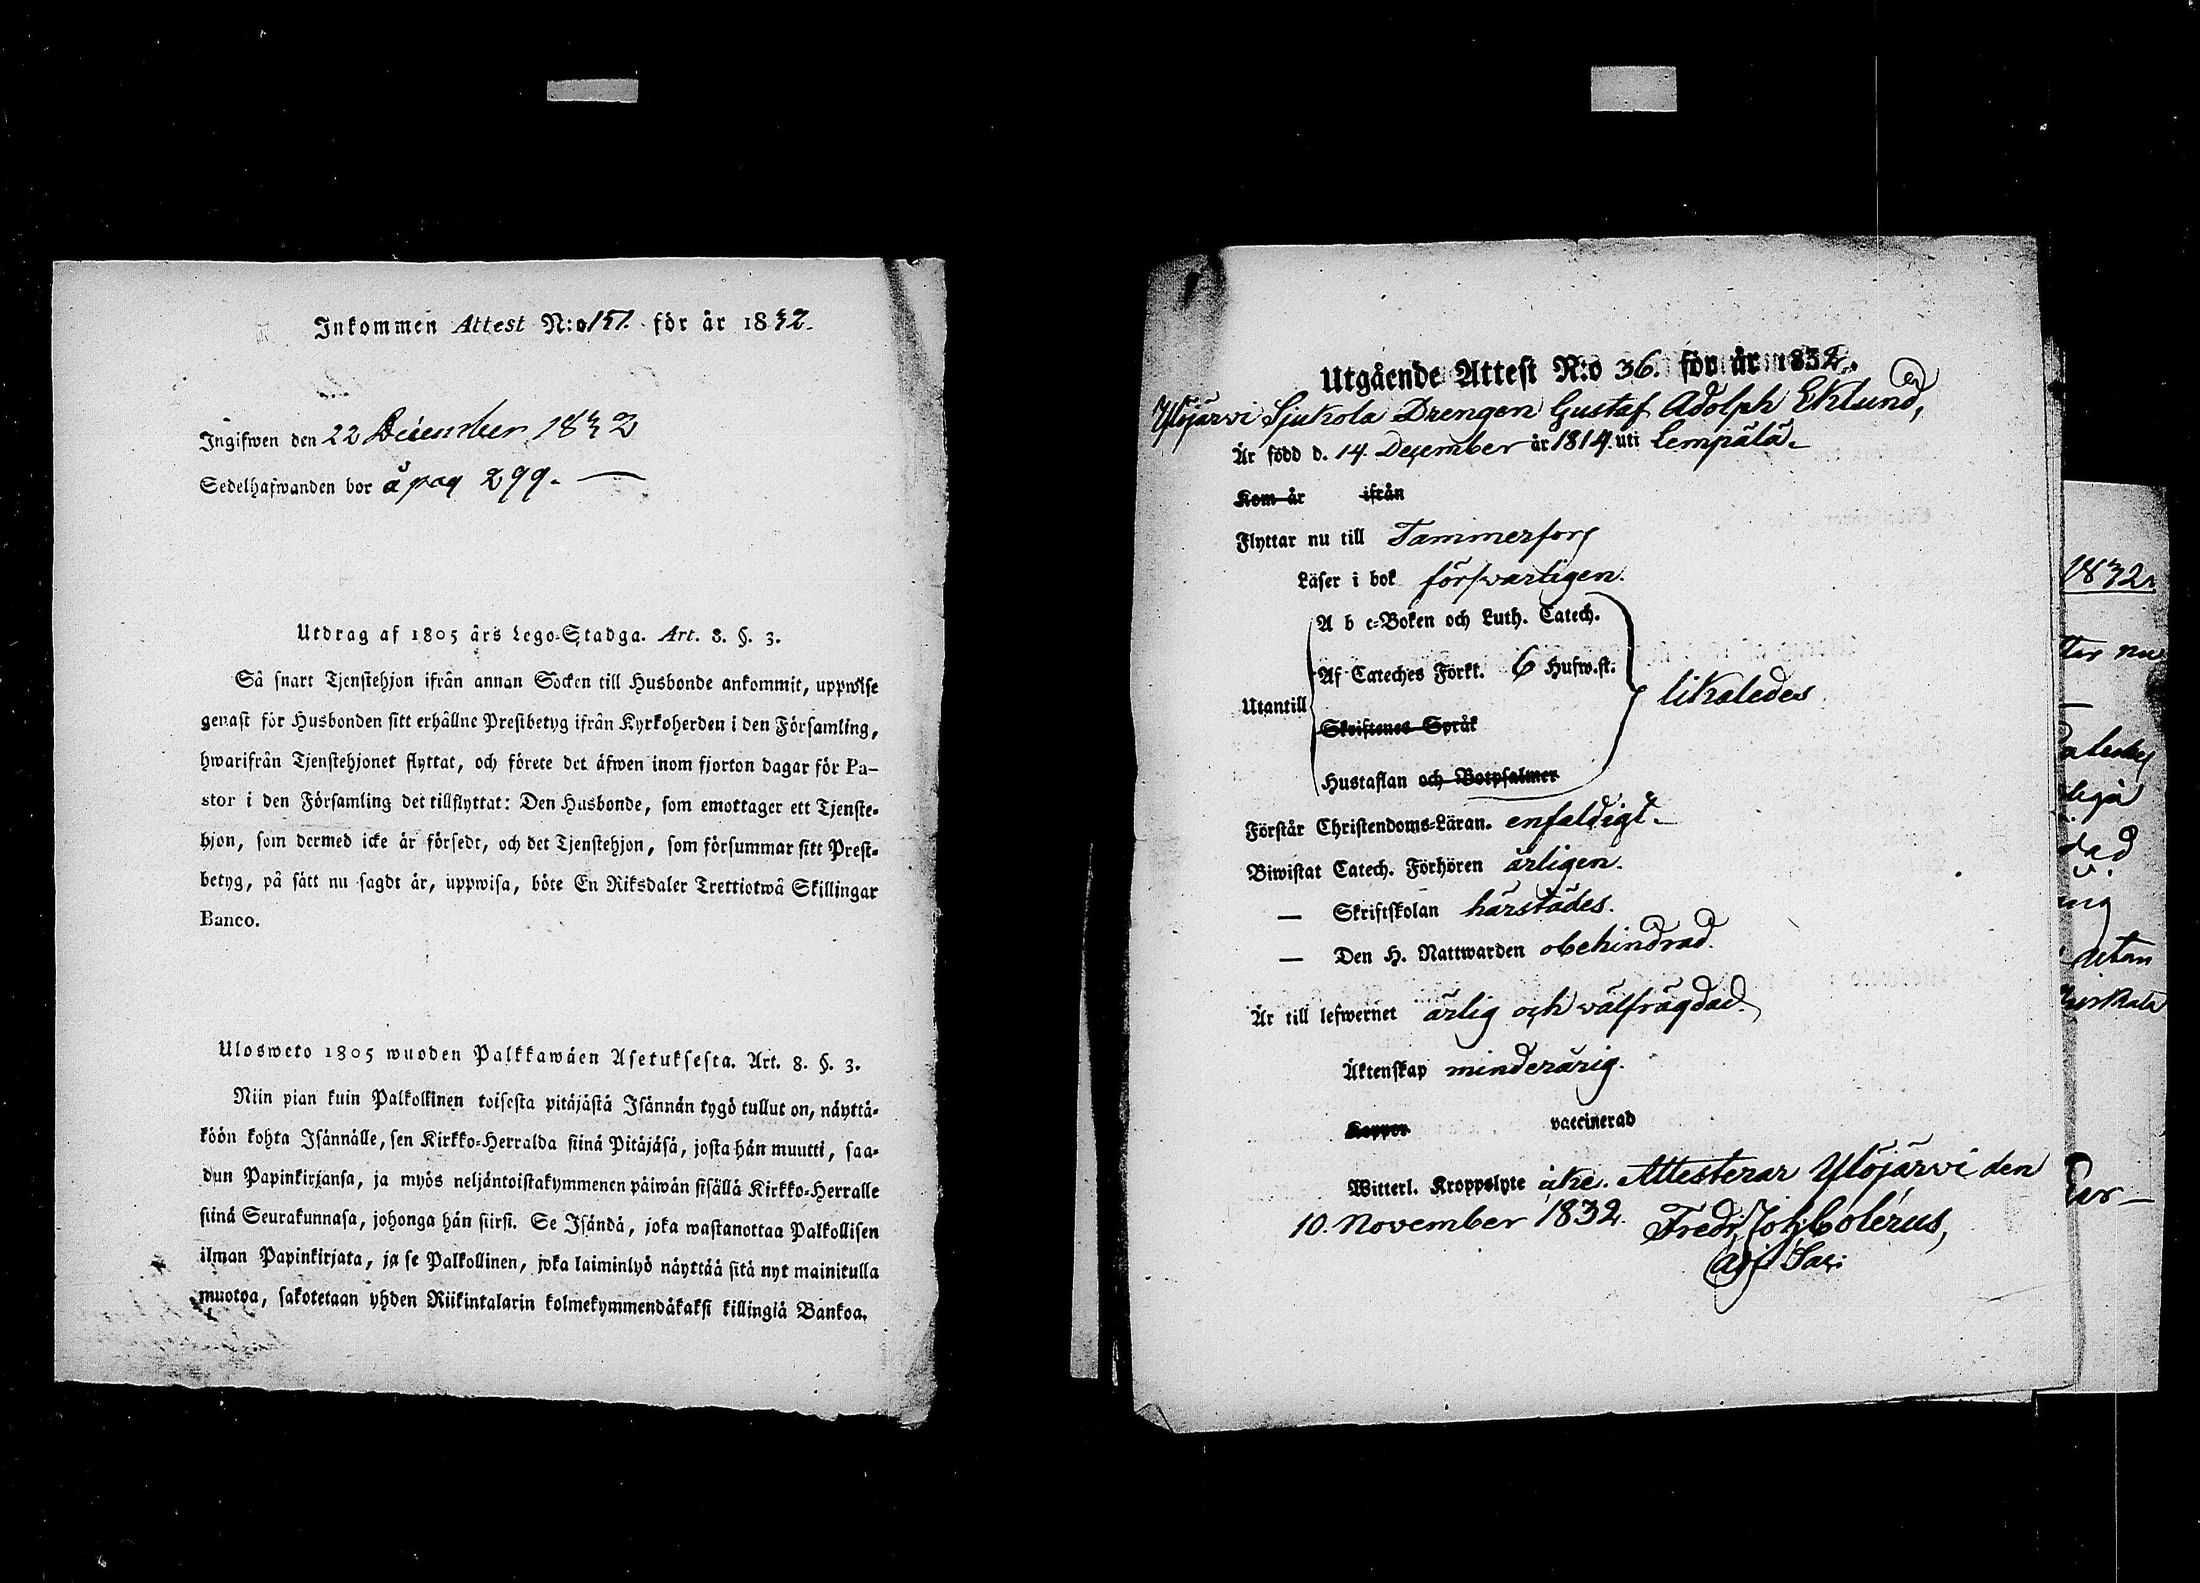 Inkommen Attest N:o 151. för år 1832.
Ingifwen den 22 December 1832
Sedelhafwanden bor å pag 299.
Utdrag af 1805 års Lego-Stadga. Art. 8. §. 3.
Så snart Tjenstehjon ifrån annan Socken till Husbonde ankommit, uppwise
genast för Husbonden sitt erhållne Prestbetyg ifrån Kyrkoherden i den Församling,
hwarifrån Tjenstehjonet flyttat, och förete det äfwen inom fjorton dagar för Pa-
stor i den Församling det tillflyttat: Den Husbonde, som emottager ett Tjenste-
hjon, som dermed icke är försedt, och det Tjenstehjon, som försummar sitt Prest-
betyg, på sätt nu sagdt är, uppwisa, böte En Riksdaler Trettiotwå Skillingar
Banco.
Ulosweto 1805 wuoden Palkkawäen Asetuksesta. Art. 8. §. 3.
Niin pian kuin Palkollinen toisesta pitäjästä Isännän tygö tullut on, näyttä-
köön kohta Isännälle, sen Kirkko-Herralda siinä Pitäjäsä, josta hän muutti, saa-
dun Papinkirjansa, ja myös neljäntoistakymmenen päiwän sisällä Kirkko-Herralle
siinä Seurakunnasa, johonga hän siirsi. Se Isändä, joka wastanottaa Palkollisen
ilman Papinkirjata, ja se Palkollinen, joka laiminlyö näyttää sitä nyt mainitulla
muotoa, sakotetaan yhden Riikintalarin kolmekymmendäkaksi killingiä Bankoa.
Utgående Attest N:o 36. för år 1832.
Ylöjärvi Sjukola Drengen Gustaf Adolph Eklund,
Är född d. 14. December år 1814 uti Lempälä.
Kom år ifrån
Flyttar nu till Tammerfors
Läser i bok försvarligen.
A b c-Boken och Luth. Catech.
Af Cateches Förkl. 6 Husw.st.
Utantill likaledes
Skriftenes Språk
Hustaflan och Botpsalmer
Förstår Christendoms-Läran. enfaldigt.
Biwistat Catech. Förhören årligen.
— Skriftskolan härstädes.
— Den H. Nattwarden obehindrad.
Är till lefwernet ärlig och välfrägdad.
Äktenskap minderårig.
Koppor vaccinerad
Witterl. Kroppslyte icke. Attesterar Ylöjärvi den
10. November 1832. Fredr. Joh. Colérus,
1832.